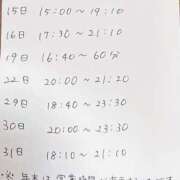 15日 15:00～19:10
16日 17:30～21:10
19日 16:40～60分
22日 20:00～21:20
29日 18:40～23:30
30日 20:00～23:30
31日 18:10～21:10
※ 年末は営業時間